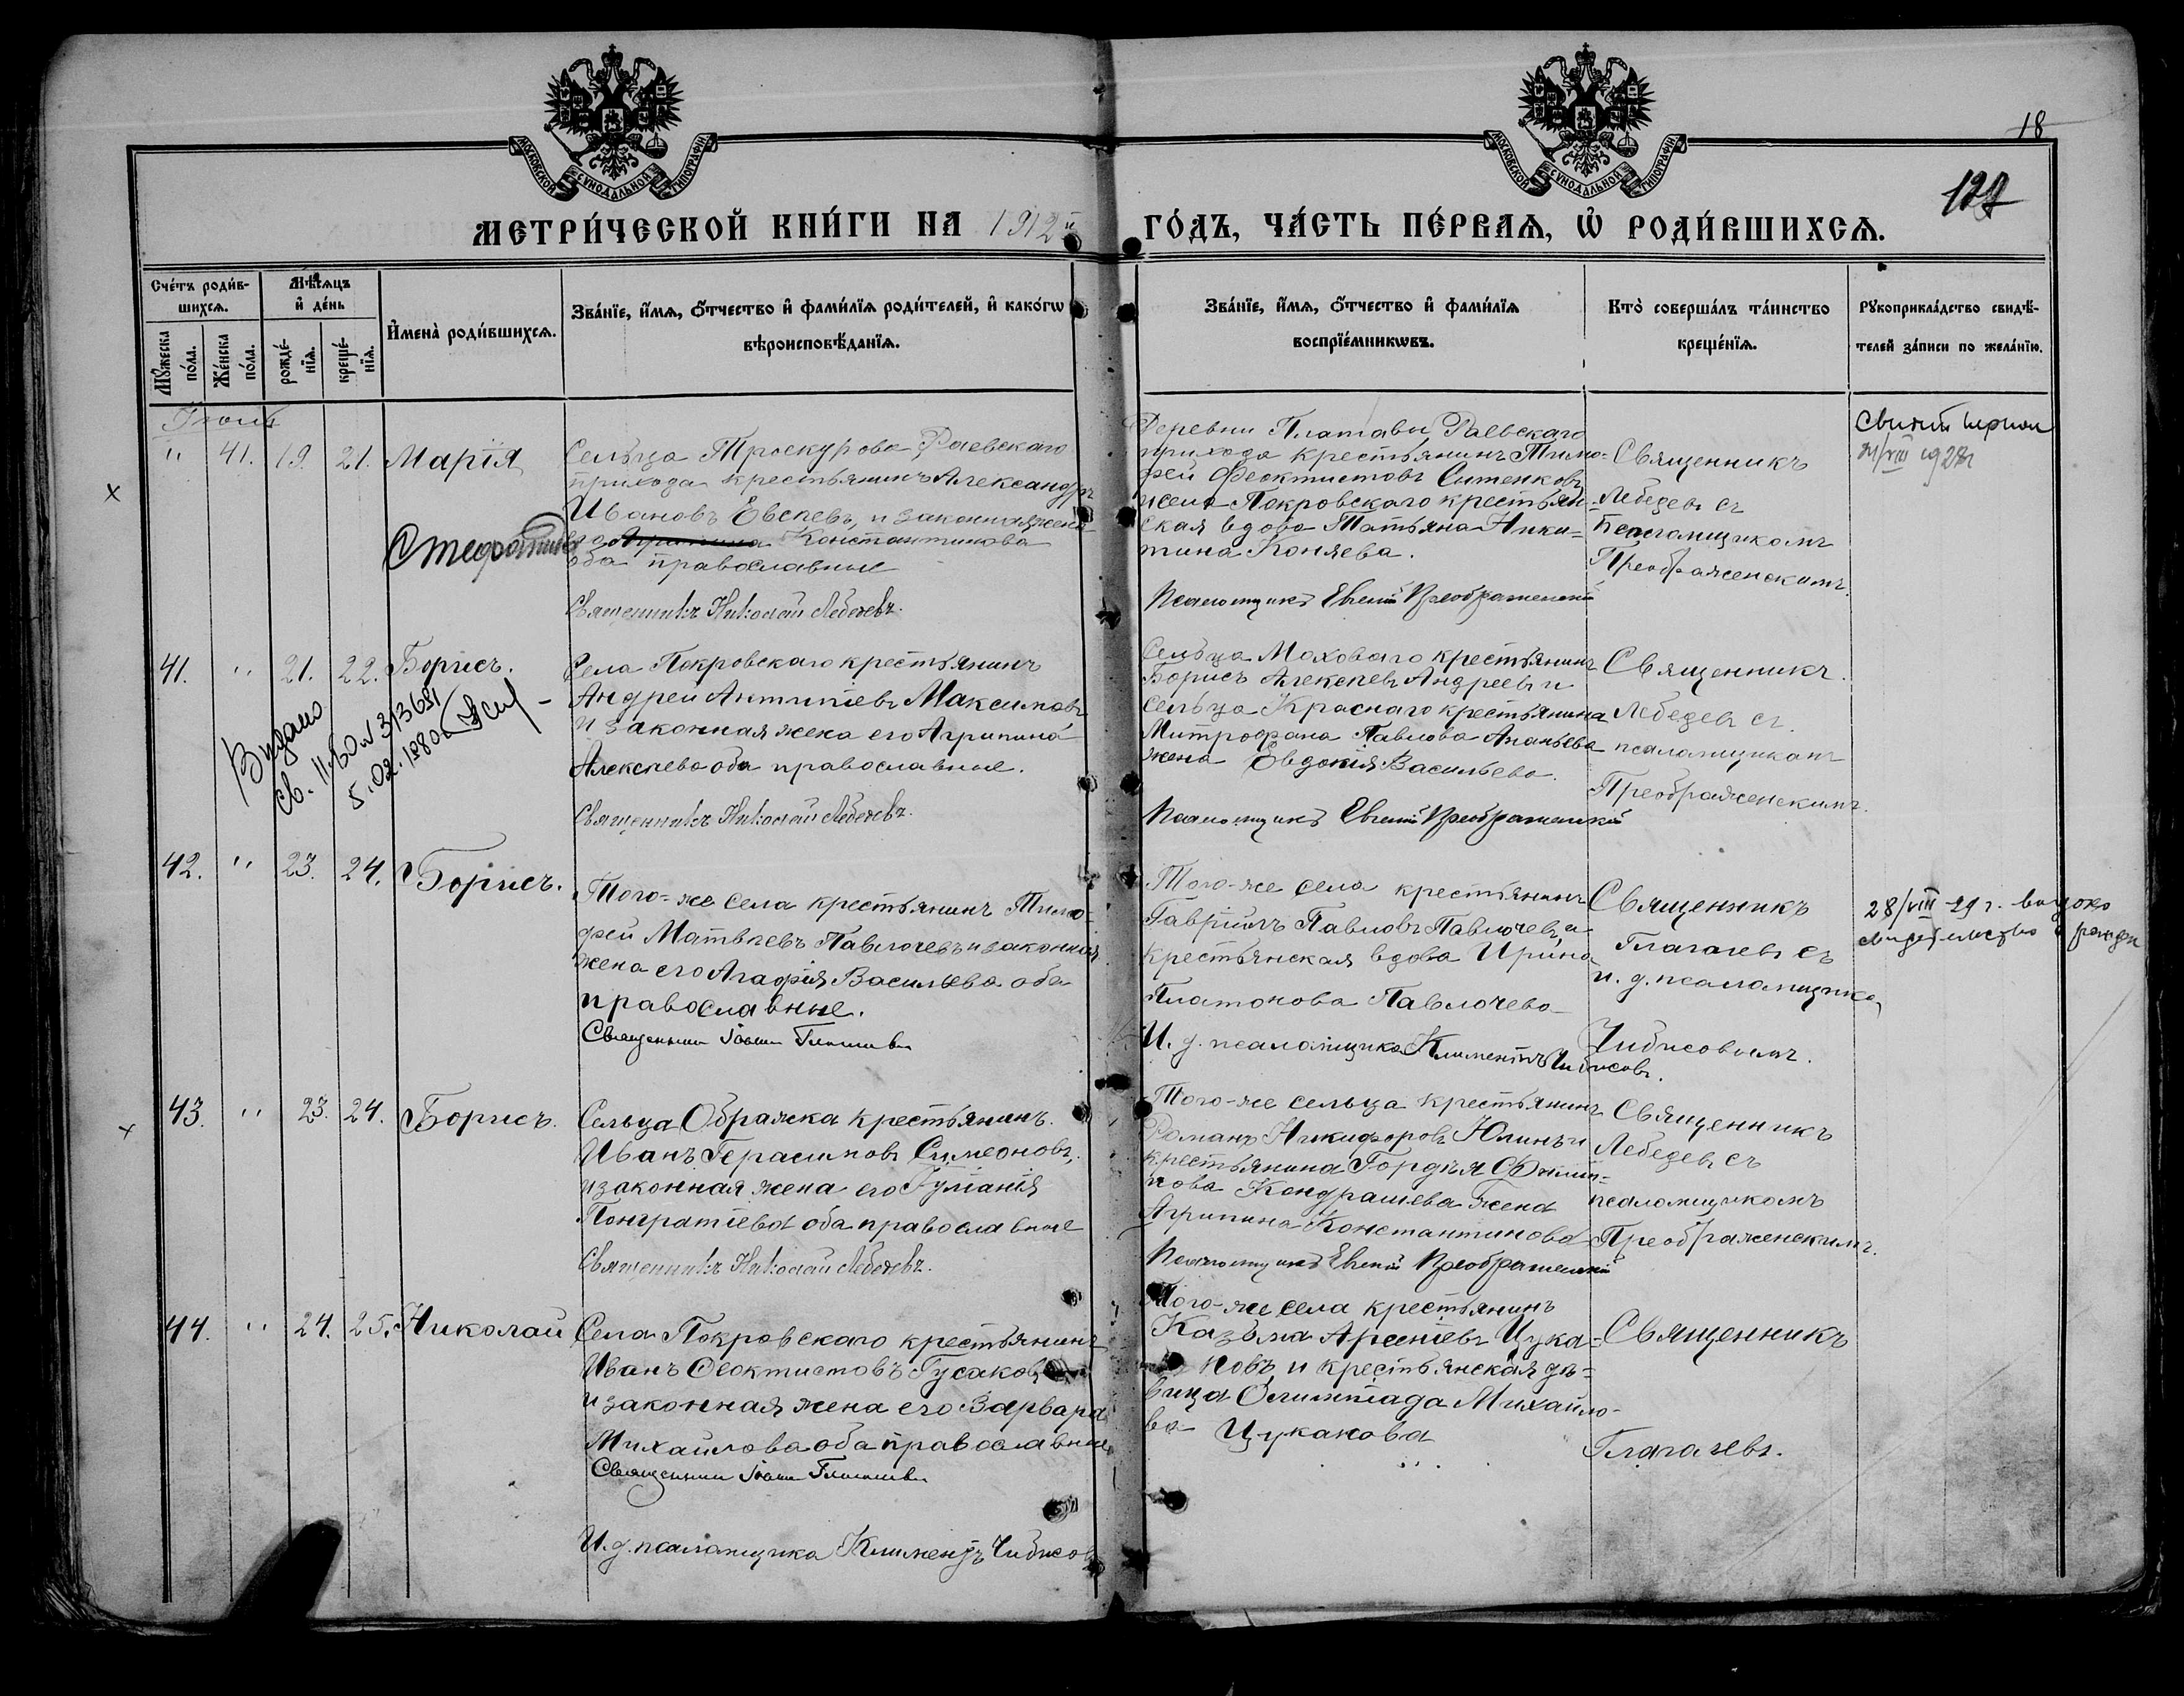 МОСКОВСКОЙ СѴНОДАЛЬНОЙ ТИПОГРАФІИ
МОСКОВСКОЙ СѴНОДАЛЬНОЙ ТИПОГРАФІИ
18
127
МЕТРИ́ЧЕСКОЙ КНИ́ГИ НА 1912й ГО́ДЪ, ЧА́СТЬ ПЕ́РВАѦ, Ѡ҆ РОДИ́ВШИХСѦ.
Сче́тъ роди́в-
шихсѧ.
Мꙋ́жеска по́ла.
Же́нска по́ла.
Мѣ́сѧцъ
и҆ де́нь
рожде́-
нїѧ.
креще́-
нїѧ.
И҆мена̀ роди́вшихсѧ.
Зва́нїе, и҆́мѧ, ѻ҆́тчество и҆ фами́лїѧ роди́телей, и҆ како́гѡ
вѣроисповѣ́данїѧ.
Зва́нїе, и҆́мѧ, ѻ҆́тчество и҆ фами́лїѧ
воспрїе́мникѡвъ.
Кто̀ соверша́лъ та́инство
креще́нїѧ.
Рꙋкоприкла́дство свидѣ́-
телей за́писи по жела́нїю.
Іюль
" 41. 19. 21. Марія
Сельца Троскурова, Раевскаго
прихода крестьянинъ Александръ
Ивановъ Евсеевъ, и законная жена
его Агрипина Константинова
оба православные
Стефанида
Священникъ Николай Лебедевъ.
Деревни Платавы, Раевскаго
прихода крестьянинъ Тимо-
фей Феоктистовъ Ситенковъ
и села Покровскаго крестьян-
ская вдова Татьяна Ники-
тина Коняева.
Псаломщикъ Евгеній Преображенскій
Священникъ
Лебедевъ съ
псаломщикомъ
Преображенскимъ.
41. " 21. 22. Борисъ.
Выдано
5.02.1980
Села Покровскаго крестьянинъ
Андрей Антипіевъ Максимовъ
и законная жена его Агрипина
Алексеева оба православные.
Священникъ Николай Лебедевъ.
Сельца Моховаго крестьянинъ
Борисъ Алексеевъ Андреевъ и
сельца Краснаго крестьянина
Митрофана Павлова Ананьева
жена Евдокія Васильева.
Псаломщикъ Евгеній Преображенскій
Священникъ
Лебедевъ съ
псаломщикомъ
Преображенскимъ.
42. " 23. 24. Борисъ.
Того-же села крестьянинъ Тимо-
фей Матвеевъ Павлючевъ и законная
жена его Агафія Васильева оба
православные.
Священникъ Іоаннъ Глаголевъ
Того-же села крестьянинъ
Гавріилъ Павловъ Павлючевъ, и
крестьянская вдова Ирина
Платонова Павлючева
И. д. псаломщика Климентъ Чибисовъ.
Священникъ
Глаголевъ съ
и. д. псаломщика
Чибисовымъ.
28/VIII-29 г. выдано
свидетельство о рожден
43. " 23. 24. Борисъ.
Сельца Ображка крестьянинъ
Иванъ Герасимовъ Симеоновъ,
и законная жена его Іуліанія
Понкратіева оба православные
Священникъ Николай Лебедевъ.
Того-же сельца крестьянинъ
Романъ Никифоровъ Юлинъ и
крестьянина Гордѣя Филип-
пова Кондрашева жена
Агрипина Константинова
Псаломщикъ Евгеній Преображенскій
Священникъ
Лебедевъ съ
псаломщикомъ
Преображенскимъ.
44. " 24. 25. Николай
Села Покровскаго крестьянинъ
Иванъ Феоктистовъ Гусаковъ
и законная жена его Варвара
Михайлова оба православные
Священникъ Іоаннъ Глаголевъ
И. д. псаломщика Климентъ Чибисовъ
Того-же села крестьянинъ
Казьма Арсеніевъ Цука-
новъ, и крестьянская дѣ-
вица Олимпіада Михайло-
ва Цуканова
Священникъ
Глаголевъ.